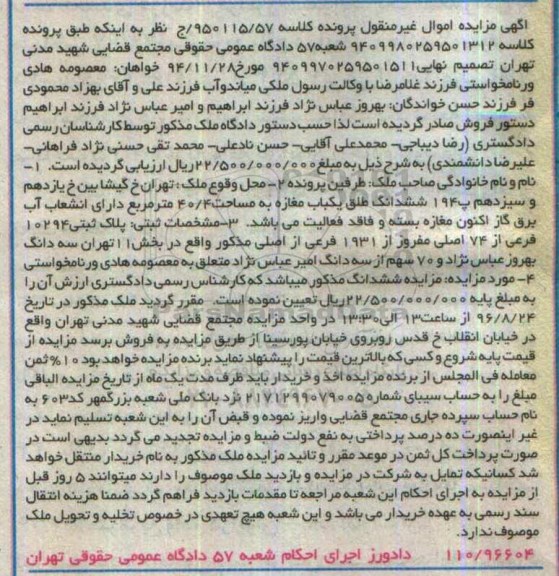 اگهی مزایده اموال غیرمنقول پرونده کلاسه ۹۵۰۱۱۵/۵۷/ج نظر به اینکه طبق پرونده
کلاسه ۹۴۰۹۹۸۰۲۵۹۵۰۱۳۱۲ شعبه۵۷ دادگاه عمومی حقوقی مجتمع قضایی شهید مدنی
تهران تصمیم نهایی۹۴۰۹۹۷۰۲۵۹۵۰۱۵۱۱ مورخ۹۴/۱۱/۲۸ خواهان: معصومه هادی
ورنامخواستی فرزند غلامرضا با وکالت رسول ملکی میاندوآب فرزند علی و آقای بهزاد محمودی
فر فرزند حسن خواندگان: بهروز عباس نژاد فرزند ابراهیم و امیر عباس نژاد فرزند ابراهیم
دستور فروش صادر گردیده است لذا حسب دستور دادگاه ملک مذکور توسط کارشناسان رسمی
دادگستری (رضا دیباجی- محمدعلی آقایی- حسن نادعلی- محمد تقی حسنی نژاد فراهانی-
علیرضا دانشمندی) به شرح ذیل به مبلغ ۲۲/۵۰۰/۰۰۰/۰۰۰ریال ارزیابی گردیده است. ۱-
نام و نام خانوادگی صاحب ملک: طرفین پرونده ۲- محل وقوع ملک: تهران خ گیشا بین خ یازدهم
و سیزدهم پ۱۹۴ ششدانگ طلق یکباب مغازه به مساحت۴۰/۴ مترمربع دارای انشعاب آب
برق گاز اکنون مغازه بسته و فاقد فعالیت می باشد. ۳-مشخصات ثبتی: پلاک ثبتی۱۰۲۹۴
فرعی از ۷۴ اصلی مفروز از ۱۹۳۱ فرعی از اصلی مذکور واقع در بخش۱۱ تهران سه دانگ
بهروز عباس نژاد و ۷۰ سهم از سه دانگ امیر عباس نژاد متعلق به معصومه هادی ورنامخواستی
۴- مورد مزایده: مزایده ششدانگ مذکور میباشد که کارشناس رسمی دادگستری ارزش آن را
به مبلغ پایه ۲۲/۵۰۰/۰۰۰/۰۰۰ریال تعیین نموده است. مقرر گردید ملک مذکور در تاریخ
۹۶/۸/۲۴ از ساعت۱۳ الی۱۳:۳۰ در واحد مزایده مجتمع قضایی شهید مدنی تهران واقع
در خیابان انقلاب خ قدس روبروی خیابان پورسینا از طریق مزایده به فروش برسد مزایده از
قیمت پایه شروع و کسی که بالاترین قیمت را پیشنهاد نماید برنده مزایده خواهد بود ۱۰%ثمن
معامله فی المجلس از برنده مزایده اخذ و خریدار باید ظرف مدت یک ماه از تاریخ مزایده الباقی
مبلغ را به حساب سیبای شماره ۲۱۷۱۲۹۹۰۷۹۰۰۵ نزد بانک ملی شعبه بزرگمهر کد۶۰۳ به
نام حساب سپرده جاری مجتمع قضایی واریز نموده و قبض آن را به این شعبه تسلیم نماید در
غیر اینصورت ده درصد پرداختی به نفع دولت ضبط و مزایده تجدید می گردد بدیهی است در
صورت پرداخت کل ثمن در موعد مقرر و تائید مزایده ملک مذکور به نام خریدار منتقل خواهد
شد کسانیکه تمایل به شرکت در مزایده و بازدید ملک موصوف را دارند میتوانند ۵ روز قبل
از مزایده به اجرای احکام این شعبه مراجعه تا مقدمات بازدید فراهم گردد ضمنا هزینه انتقال
سند رسمی به عهده خریدار می باشد و این شعبه هیچ تعهدی در خصوص تخلیه و تحویل ملک
موصوف ندارد.
۱۱۰/۹۶۶۰۴ دادورز اجرای احکام شعبه ۵۷ دادگاه عمومی حقوقی تهران